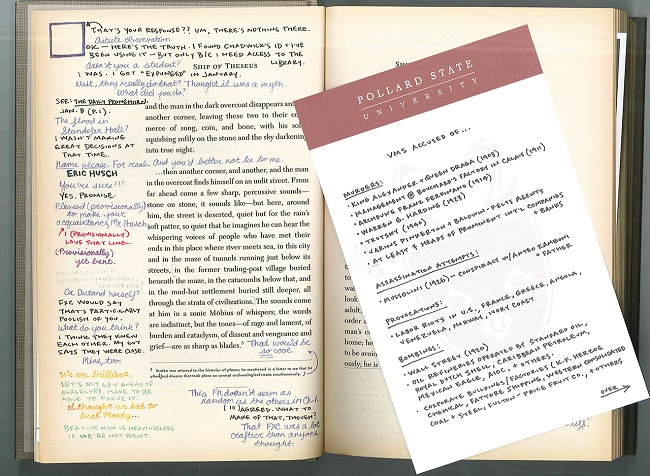 THAT'S YOUR RESPONSE?? UM, THERE'S NOTHING THERE.
Astute observation.
OK – HERE'S THE TRUTH. I FOUND CHADWICK'S ID + I'VE
BEEN USING IT – BUT ONLY B/C I NEED ACCESS TO THE
LIBRARY.
Aren't you a student?
SHIP OF THESEUS
I WAS. I GOT "EXPUNGED" IN JANUARY.
Wait, they really do that? Thought it was a myth.
What did you do?
SEE: THE DAILY PRONGHORN,
JAN. 8 (P. 1).
The flood in
Standefer Hall?
I WASN'T MAKING
GREAT DECISIONS AT
THAT TIME.
Name please. For real. And you'd better not lie to me.
ERIC HUSCH
You're sure???
YES. PROMISE.
Pleased (provisionally)
to make your
acquaintance, Mr. Husch
I (PROVISIONALLY)
LOVE THAT LINE.
(Provisionally)
yet bent.
Or Durand herself?
FXC WOULD SAY
THAT'S PARTICULARLY
FOOLISH OF YOU.
What do you think?
I THINK THEY KNEW
EACH OTHER. MY GUT
SAYS THEY WERE CLOSE.
Mine, too.
We are brilliant.
LET'S NOT GET AHEAD OF
OURSELVES. HAVE TO BE
ABLE TO PROVE IT.
I thought we had to
beat Moody...
BEATING HIM IS MEANINGLESS
IF WE'RE NOT RIGHT.
and the man in the dark overcoat disappears around
another corner, leaving these two to their com-
merce of song, coin, and bone, with his soles
squishing softly on the stone and the sky darkening
into true night.
...then another corner, and another, and the man
in the overcoat finds himself on an unlit street. From
far ahead come a few sharp, percussive sounds—
stone on stone, it sounds like—but here, around
him, the street is deserted, quiet but for the rain's
soft patter, so quiet that he imagines he can hear the
whispering voices of people who have met their
ends in this place where river meets sea, in this city
and in the maze of tunnels running just below its
streets, in the former trading-post village buried
beneath the maze, in the catacombs below that, and
in the mud-hut settlement buried still deeper, all
through the strata of civilizations. The sounds come
at him in a sonic Möbius of whispers; the words
are indistinct, but the tones—of rage and lament, of
burden and cataclysm, of dissent and vengeance and
grief—are as sharp as blades.²
That would be
so cool.
² Straka was attuned to the histories of places; he mentioned in a letter to me that he
often had dreams that took place on several archaeological strata simultaneously.
This FN doesn't seem as
random as the others in Ch. 1.
AGREED. WHAT TO
MAKE OF THAT, THOUGH?
That FXC was a lot
craftier than anyone
thought.
POLLARD STATE
UNIVERSITY
VMS ACCUSED OF...
MURDERS:
• KING ALEXANDER + QUEEN DRAGA (1903)
• MANAGEMENT @ BOUCHARD'S FACTORY IN CALAIS (1911)
• ARCHDUKE FRANZ FERDINAND (1914)
• WARREN G. HARDING (1923)
• TROTSKY (1940)
• VARIOUS PINKERTON + BALDWIN-FELTS AGENTS
• AT LEAST 7 HEADS OF PROMINENT INT'L COMPANIES
+ BANKS
ASSASSINATION ATTEMPTS:
• MUSSOLINI (1926) – CONSPIRACY W/ANTEO ZAMBONI
+ FATHER
PROVOCATIONS:
• LABOR RIOTS IN U.S., FRANCE, GREECE, ANGOLA,
VENEZUELA, MORAVIA, IVORY COAST
BOMBINGS:
• WALL STREET (1920)
• OIL REFINERIES OPERATED BY STANDARD OIL,
ROYAL DUTCH SHELL, CARIBBEAN PETROLEUM,
MEXICAN EAGLE, AIOC, + OTHERS.
• CORPORATE BUILDINGS/FACTORIES (K.F. HERZOG
CHEMICAL, FATTORE SHIPPING, WESTERN CONSOLIDATED
COAL + STEEL, FULTON-PRICE FRUIT CO., + OTHERS
OVER